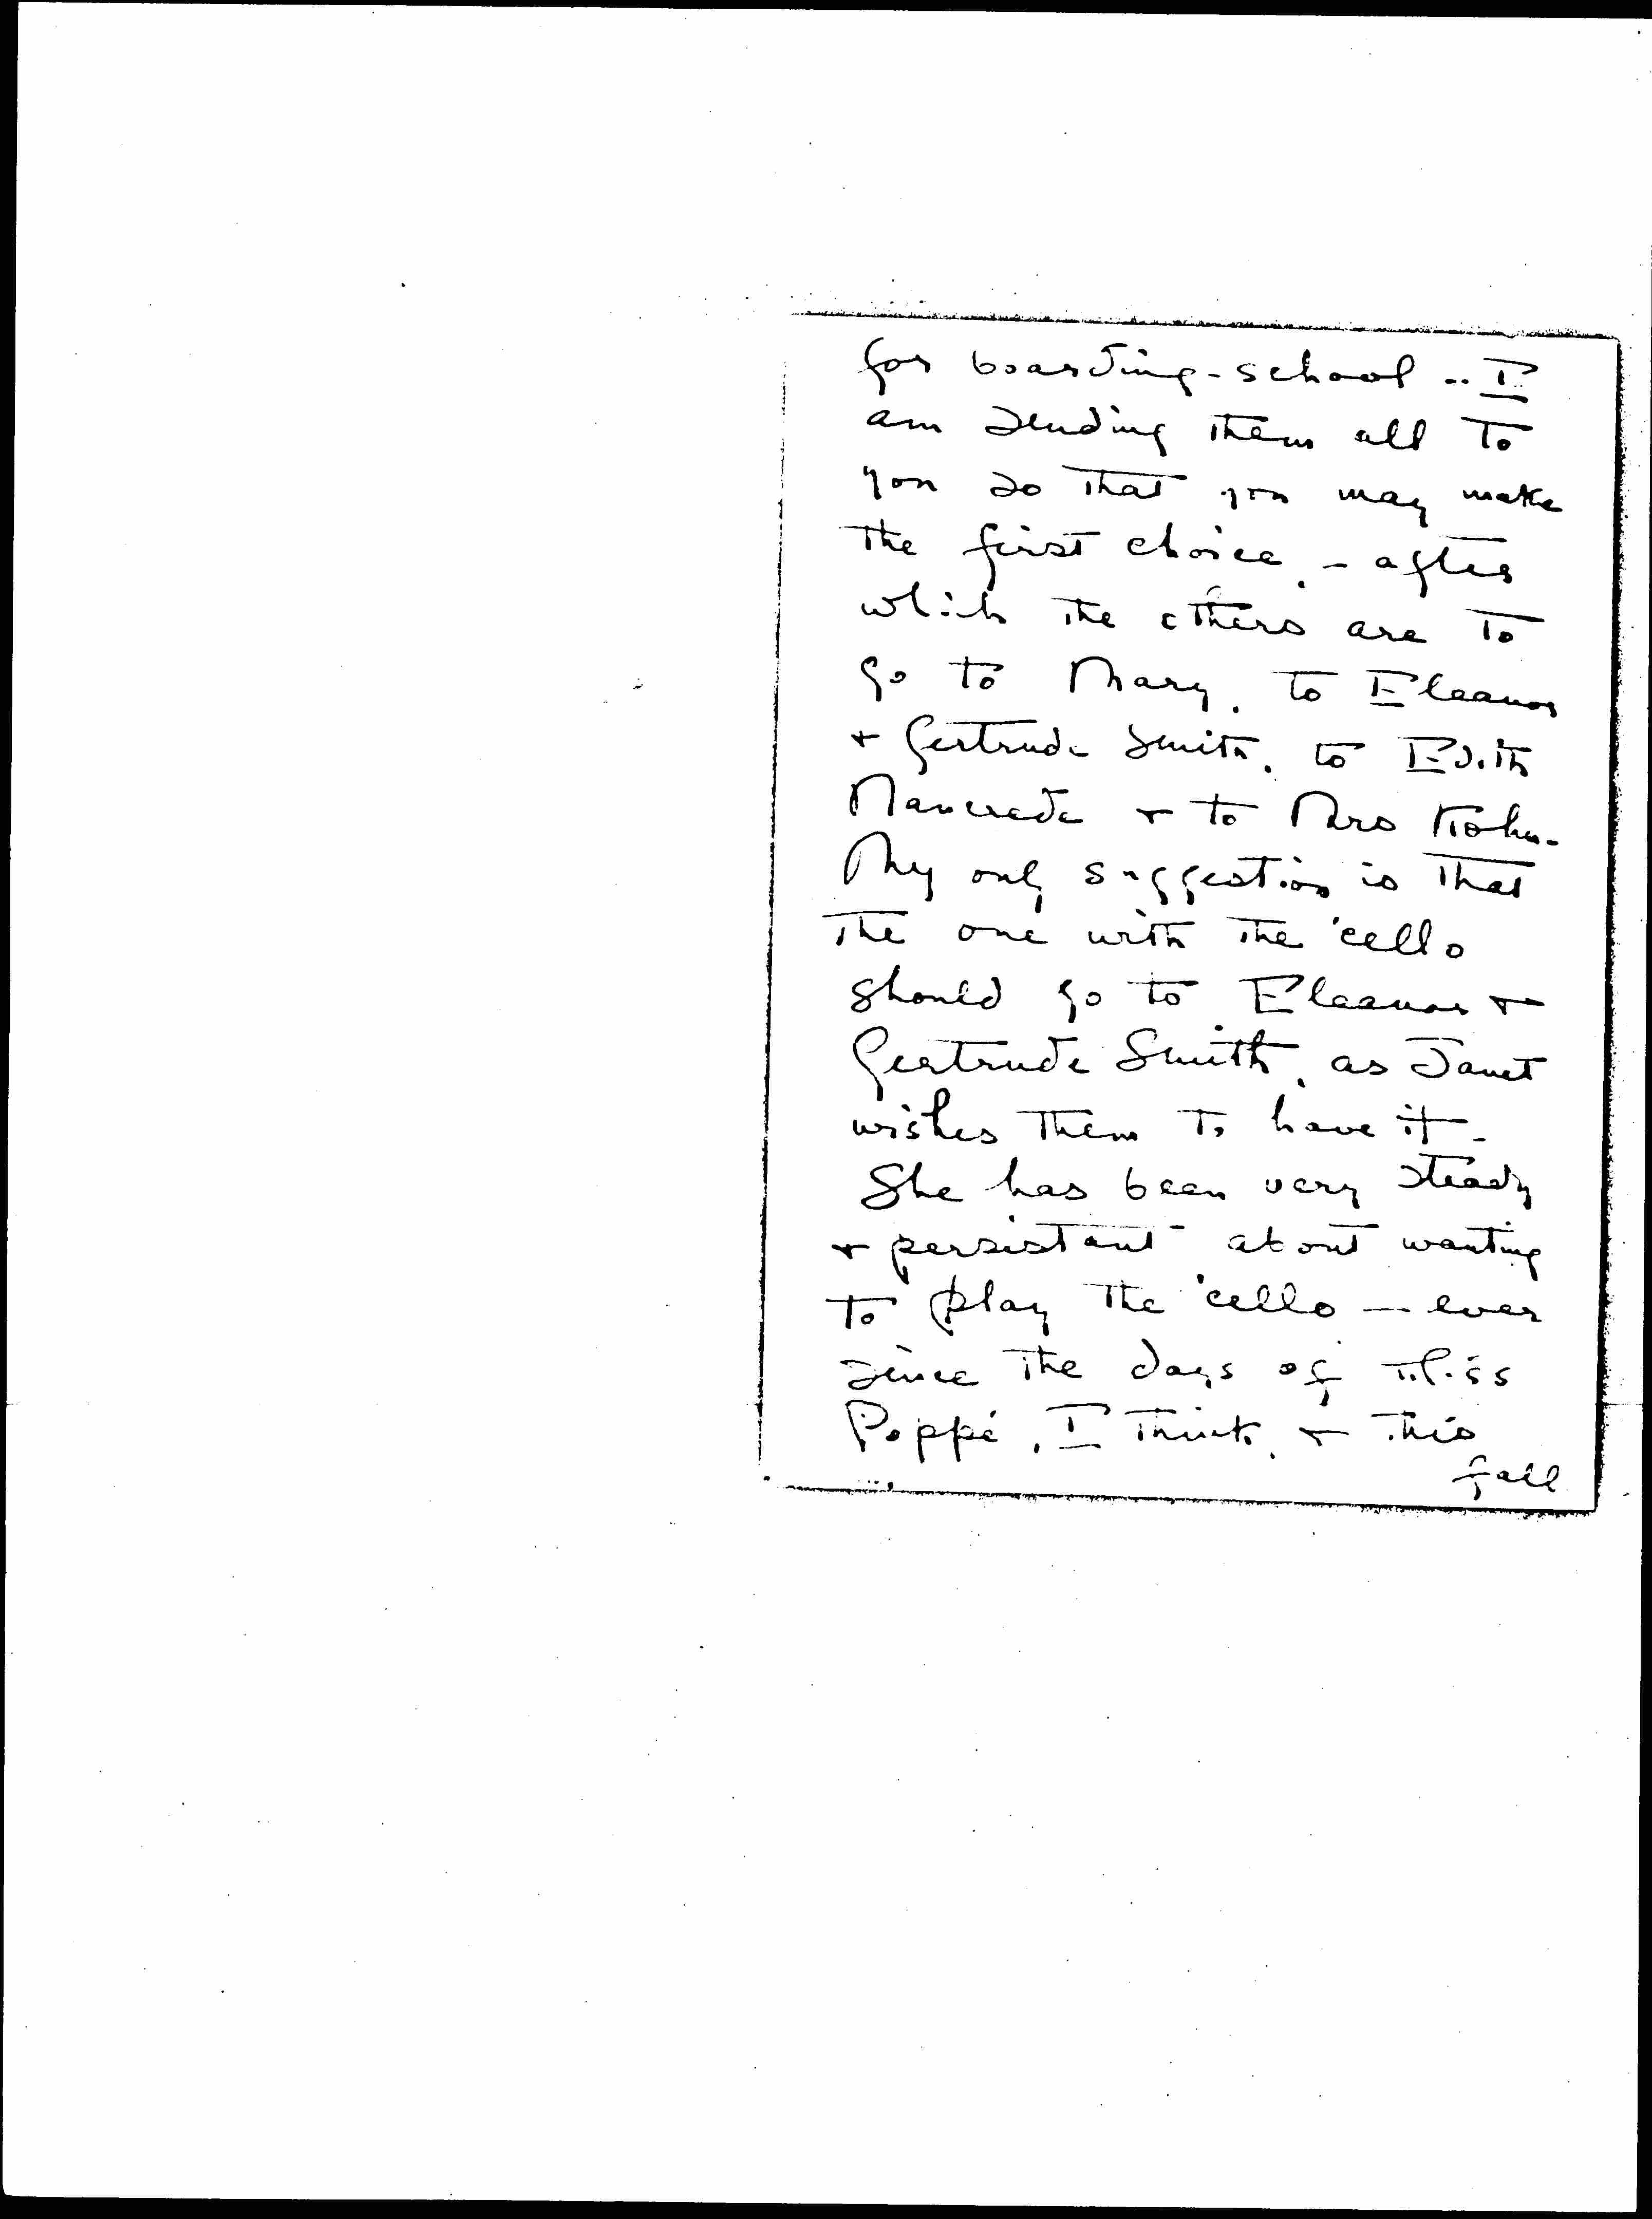 for boarding-school -- I
am sending them all to
you so that you may make
the first choice, - after
which the others are to
go to Mary, to Eleanor
+ Gertrude Smith, to Edith
+ to Mrs Kohn-
My only suggestion is that
the one with the 'cello
should go to Eleanor +
Gertrude Smith, as Janet
wishes them to have it -
She has been very steady
+ persistant about wanting
to play the 'cello -- ever
since the days of Miss
Poppé, I think, + this
fall